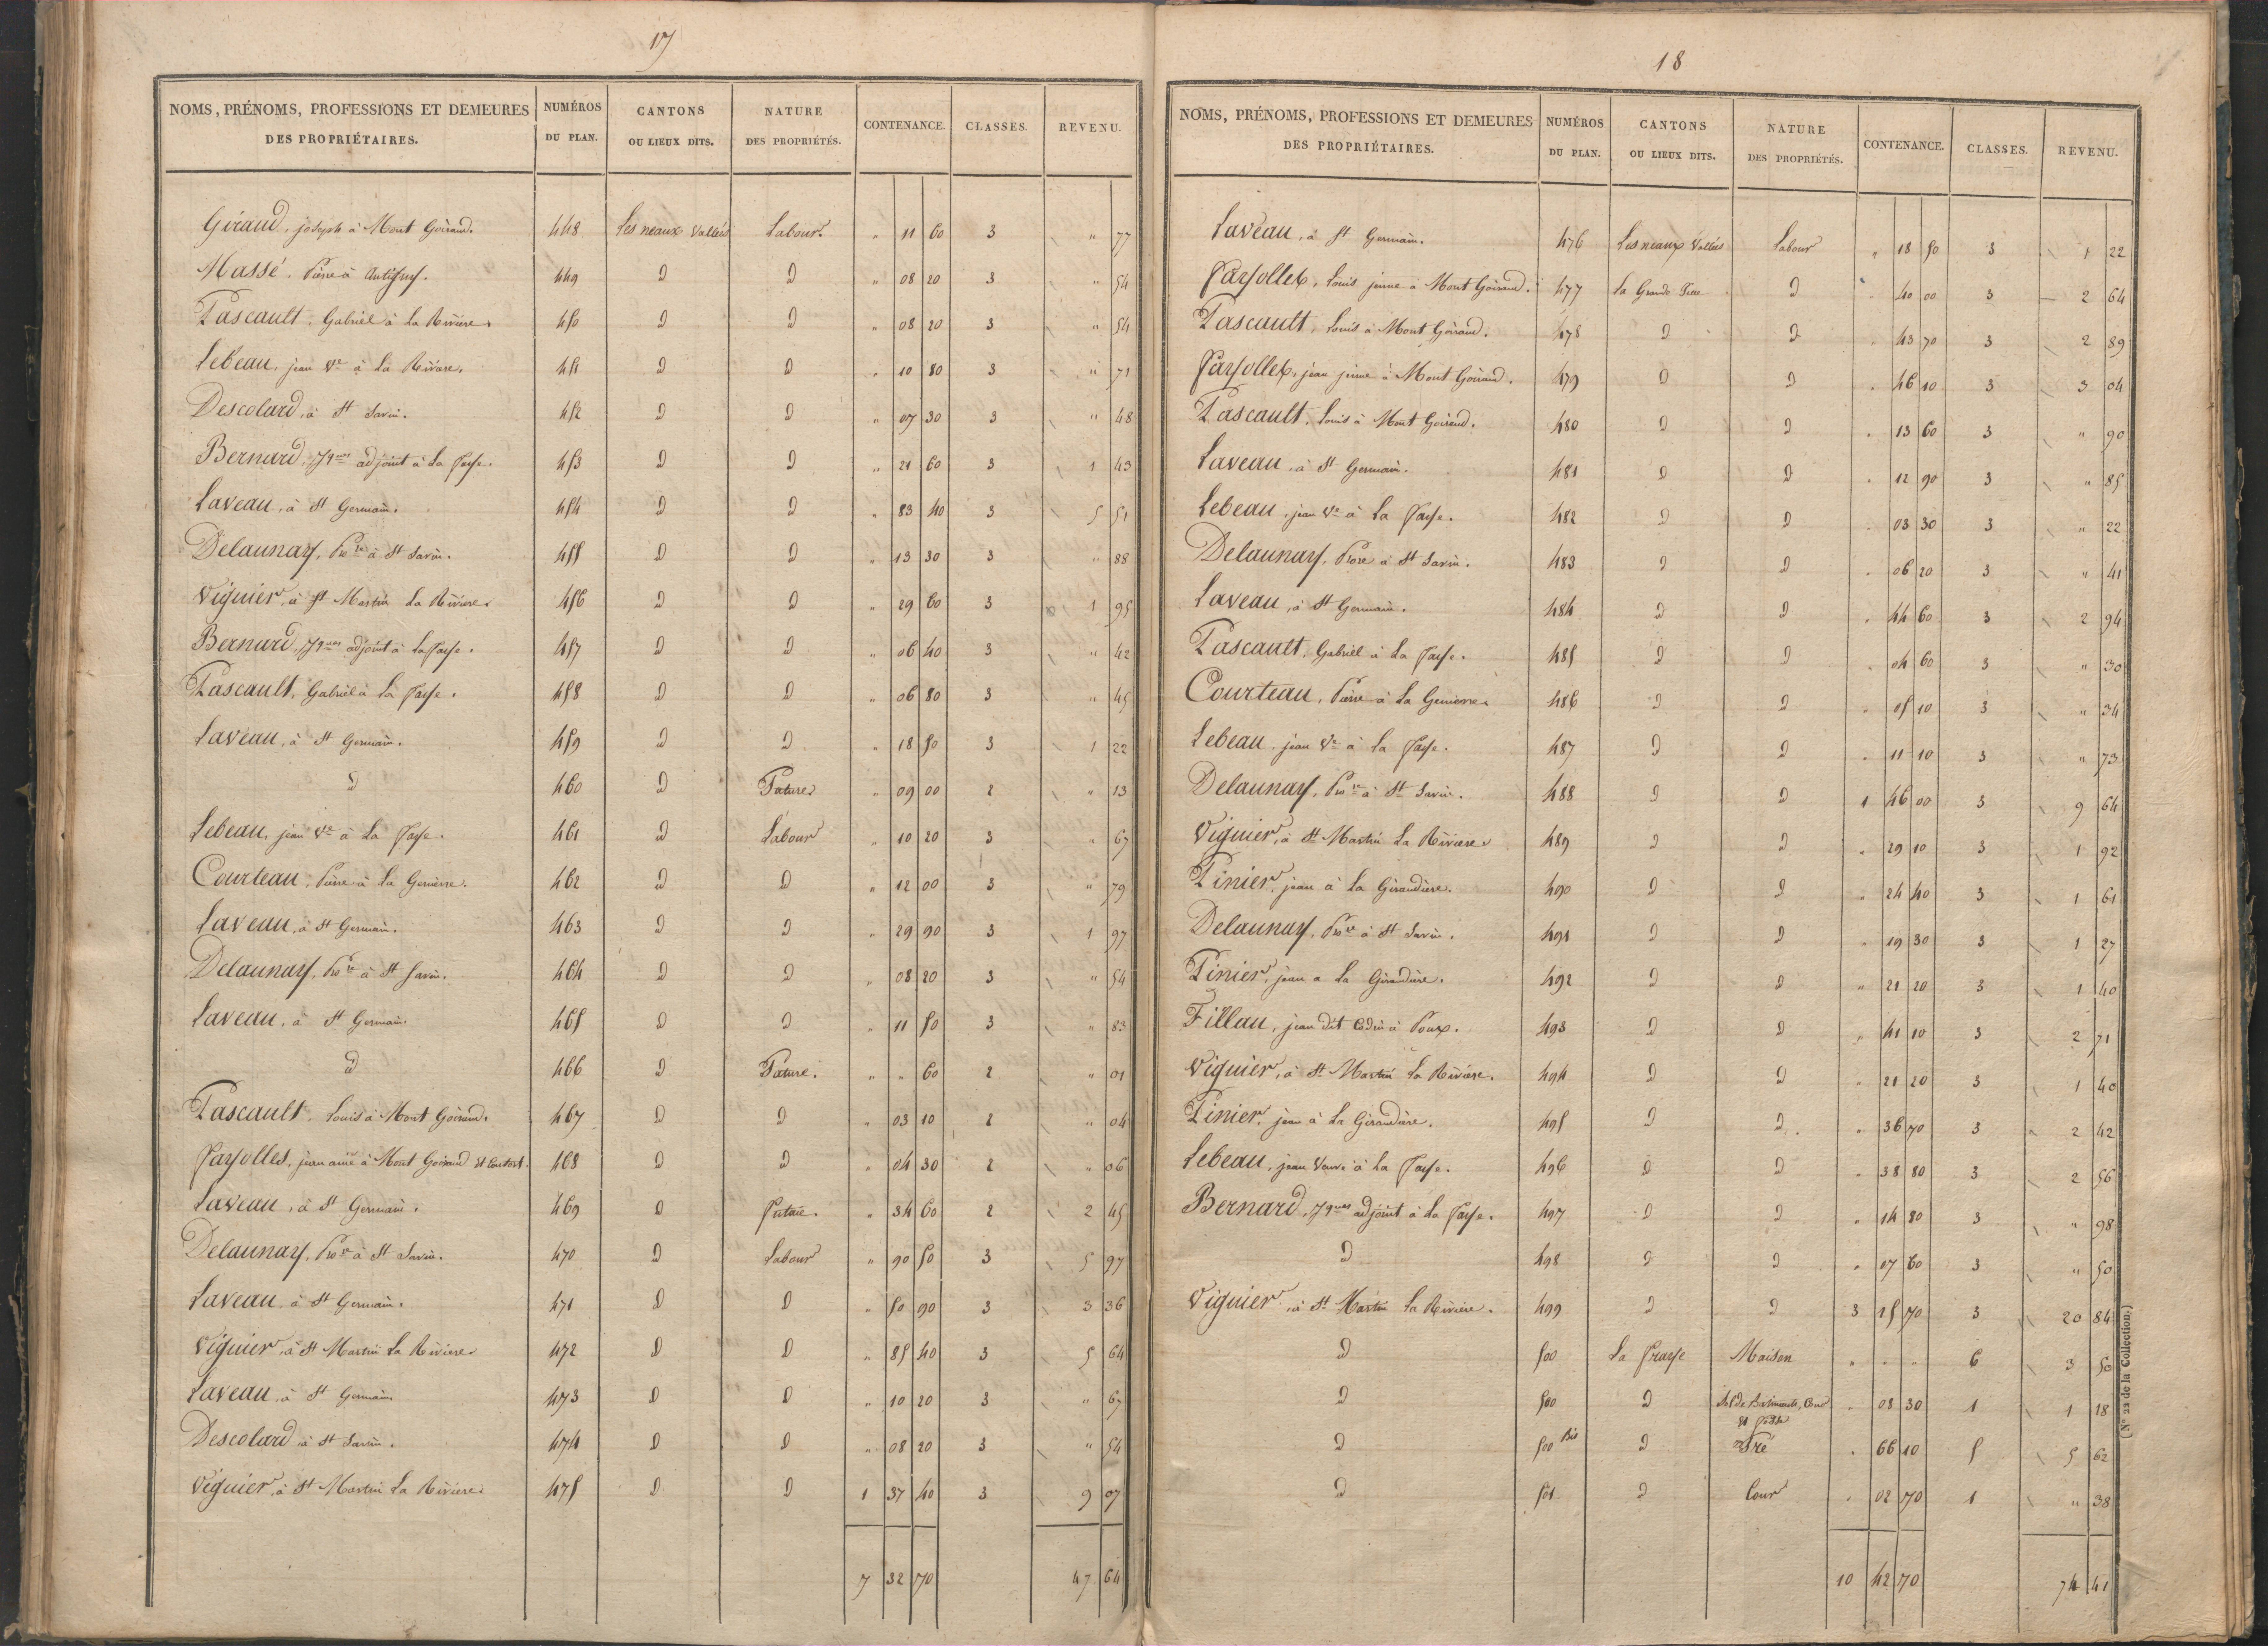 17
NOMS, PRÉNOMS, PROFESSIONS ET DEMEURES DES PROPRIÉTAIRES. NUMÉROS DU PLAN. CANTONS OU LIEUX DITS. NATURE DES PROPRIÉTÉS. CONTENANCE. CLASSES. REVENU.
Giraud, joseph à Mont Goirand. 448 Les neaux Vallées Labour. " 11 60 3 " 77
Massé, Pierre à Antigny. 449 D D " 08 20 3 " 54
Pascault, Gabriel à La Rivière. 450 D D " 08 20 3 " 54
Lebeau, jean Ve à La Rivière. 451 D D " 10 80 3 " 71
Descolard, à St Savin. 452 D D " 07 30 3 " 48
Bernard, adjoint à La 453 D D " 21 60 3 1 43
Laveau, à St Germain. 454 D D " 83 40 3 5 51
Delaunay, Pre à St Savin. 455 D D " 13 30 3 " 88
Viguier, à St Martin La Rivière. 456 D D " 29 60 3 1 95
Bernard, adjoint à La 457 D D " 06 40 3 " 42
Pascault, Gabriel à La 458 D D " 06 80 3 " 45
Laveau, à St Germain. 459 D D " 18 50 3 1 22
D 460 D Pature " 09 00 2 " 13
Lebeau, jean Ve à La 461 D Labour " 10 20 3 " 67
Courteau, Pierre à La 462 D D " 12 00 3 " 79
Laveau, à St Germain. 463 D D " 29 90 3 1 97
Delaunay, Pre à St Savin. 464 D D " 08 20 3 " 54
Laveau, à St Germain. 465 D D " 11 50 3 " 83
D 466 D Pature. " " 60 2 " 01
Pascault, Louis à Mont Goirand. 467 D D " 03 10 2 " 04
jean ainé à Mont Goirand 468 D D " 04 30 2 " 06
Laveau, à St Germain. 469 D " 34 60 2 2 45
Delaunay, Pre à St Savin. 470 D Labour " 90 50 3 5 97
Laveau, à St Germain. 471 D D " 50 90 3 3 36
Viguier, à St Martin La Rivière 472 D D " 85 40 3 5 64
Laveau, à St Germain 473 D D " 10 20 3 " 67
Descolard, à St Savin. 474 D D " 08 20 3 " 54
Viguier, à St Martin La Rivière. 475 D D 1 37 40 3 9 07
7 32 70 47 64
18
NOMS, PRÉNOMS, PROFESSIONS ET DEMEURES DES PROPRIÉTAIRES. NUMÉROS DU PLAN. CANTONS OU LIEUX DITS. NATURE DES PROPRIÉTÉS. CONTENANCE. CLASSES. REVENU.
Laveau, à St Germain. 476 Les neaux Vallées Labour " 18 50 3 1 22
Louis jeune à Mont Goirand. 477 La Grande D " 40 00 3 2 64
Pascault, Louis à Mont Goirand. 478 D D " 43 70 3 2 89
jean jeune à Mont Goirand. 479 D D " 46 10 3 3 04
Pascault, Louis à Mont Goirand. 480 D D " 13 60 3 " 90
Laveau, à St Germain. 481 D D " 12 90 3 " 85
Lebeau, jean Ve à La 482 D D " 03 30 3 " 22
Delaunay, Pre à St Savin. 483 D D " 06 20 3 " 41
Laveau, à St Germain. 484 D D " 44 60 3 2 94
Pascault, Gabriel à La 485 D D " 04 60 3 " 30
Courteau, Pierre à La 486 D D " 05 10 3 " 34
Lebeau, jean Ve à La 487 D D " 11 10 3 " 73
Delaunay, Pre à St Savin. 488 D D 1 46 00 3 9 64
Viguier, à St Martin La Rivière 489 D D " 29 10 3 1 92
Pinier, jean à La Giraudière. 490 D D " 24 40 3 1 61
Delaunay, Pre à St Savin. 491 D D " 19 30 3 1 27
Pinier, jean a La Giraudière. 492 D D " 21 20 3 1 40
Fillau, jean dit à 493 D D " 41 10 3 2 71
Viguier, à St Martin La Rivière. 494 D D " 21 20 3 1 40
Pinier, jean à La Giraudière. 495 D D " 36 70 3 2 42
Lebeau, jean Veuve à La 496 D D " 38 80 3 2 56
Bernard, adjoint à La 497 D D " 14 80 3 " 98
D 498 D D " 07 60 3 " 50
Viguier, à St Martin La Rivière. 499 D D 3 15 70 3 20 84
D 500 La Maison " " " 6 3 50
D 500 D Sol de Batiments, Cour et " 08 30 1 1 18
D 500 Bis D Pré " 66 10 5 5 62
D 501 D Cour " 02 70 1 " 38
10 42 70 74 41
(N° 22 de la Collection.)